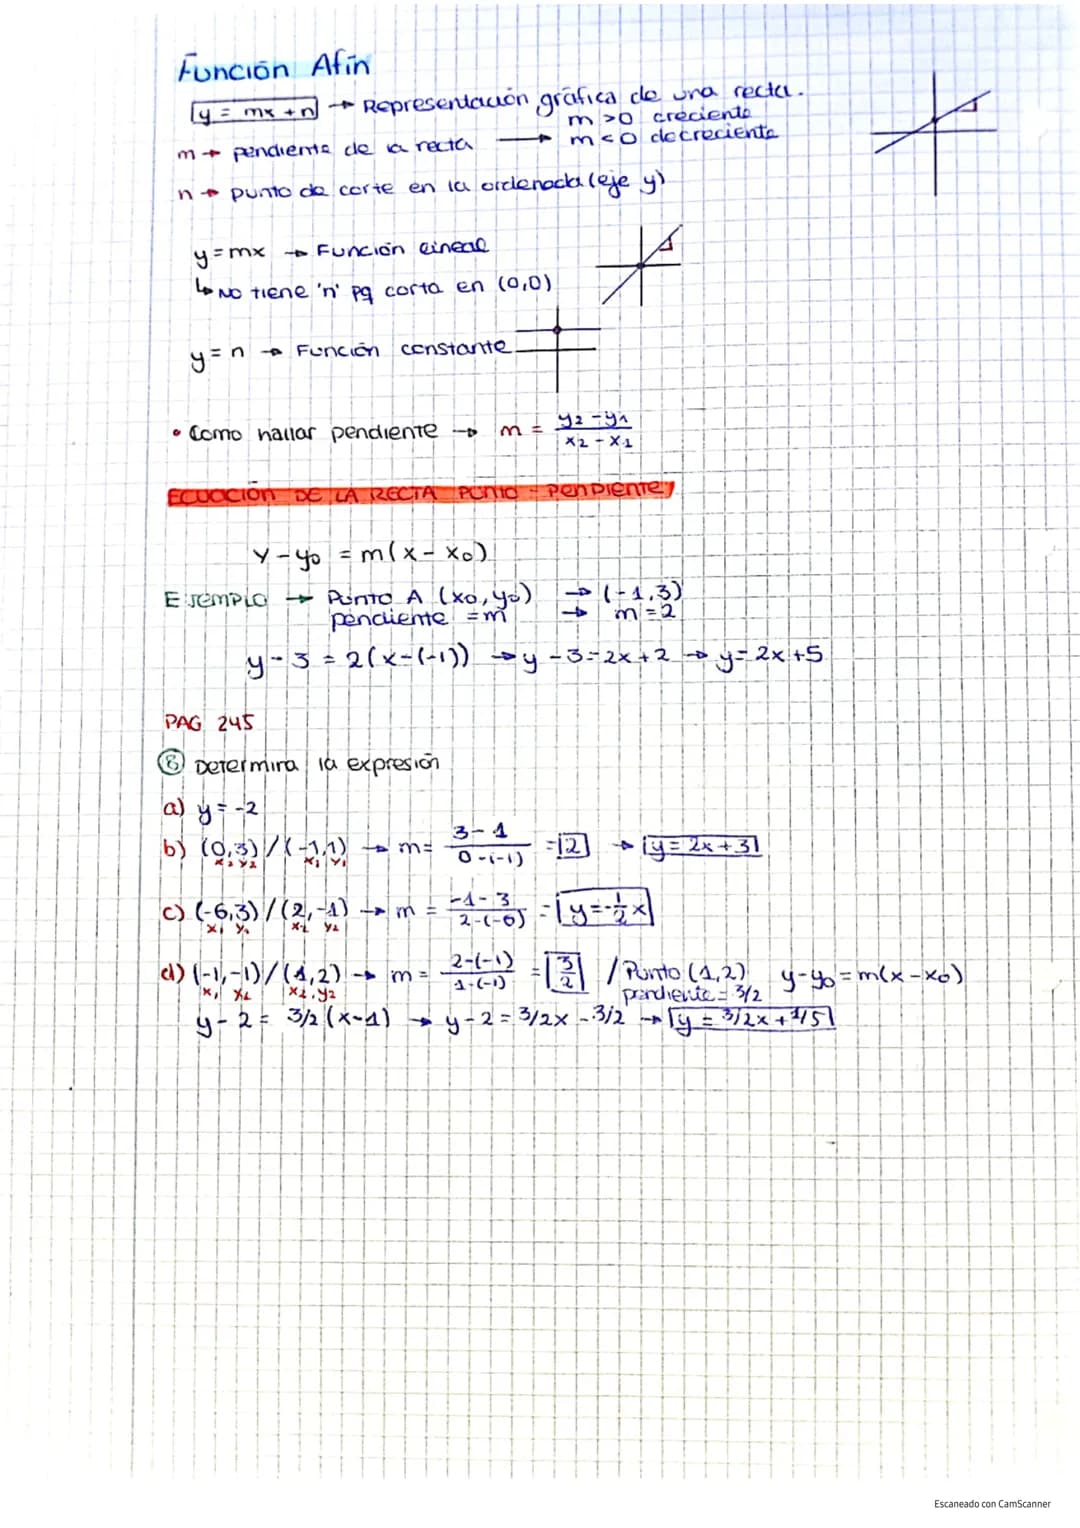 Función Afín
y = mx + n → Representación gráfica de una recta.
m > 0 creciente
m → pendiente de la recta → m < 0 decreciente
n → punto de corte en la ordenada (eje y)
y = mx → Función lineal
↳ No tiene 'n' pq corta en (0,0)
y = n → Función constante
• Como hallar pendiente → m = (y2 - y1)/(x2 - x1)
ECUACIÓN DE LA RECTA PUNTO - PENDIENTE
Y - y0 = m(x - x0)
EJEMPLO → Punto A (x0, y0) → (-1,3)
pendiente = m → m = 2
y - 3 = 2(x-(-1)) → y - 3 = 2x + 2 → y = 2x + 5
PAG 245
⑧ Determina la expresión
a) y = -2
b) (0,3) / (-1,1) → m = (3 - 1)/(0 - (-1)) = 2 → y = 2x + 3
x2 y2 x1 y1
c) (-6,3) / (2,-1) → m = (-1 - 3)/(2 - (-6)) = y = -1/2 x
x1 y1 x2 y2
d) (-1,-1) / (1,2) → m = (2-(-1))/(1-(-1)) = 3/2 / Punto (1,2) y - y0 = m(x - x0)
x1 x2 x2, y2 pendiente = 3/2
y - 2 = 3/2 (x - 1) → y - 2 = 3/2x - 3/2 → y = 3/2x + 1/5
Escaneado con CamScanner